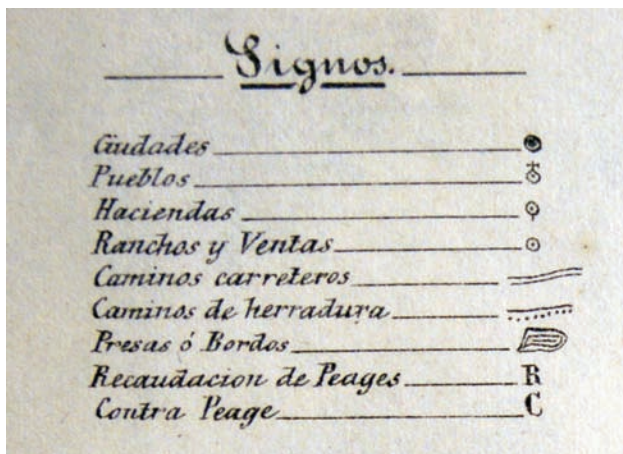 Signos.
Ciudades
Pueblos
Haciendas
Ranchos y Ventas
Caminos carreteros
Caminos de herradura
Presas ó Bordos
Recaudacion de Peages R
Contra Peage C